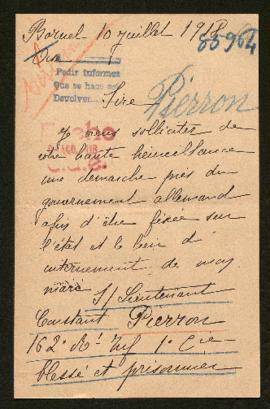 Bornel 10 juillet 1918
88964
Pedir informes
Que se hace
Devolver
Sire
Pierron
Je viens solliciter de
votre haute bienveillance
une démarche près du
gouvernement allemand
afin d'être fixée sur
l'état et le lieu d'
internement de mon
mari S/Lieutenant
Constant Pierron
162e Rt Inf 1e Cie
blessé et prisonnier